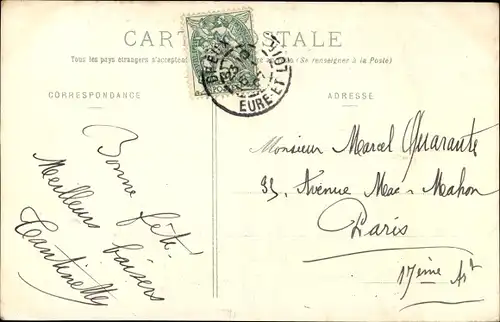 CARTE POSTALE
Tous les pays étrangers n'acceptent (Se renseigner à la Poste)
DREUX
EURE-ET-LOIR
CORRESPONDANCE
ADRESSE
Bonne fête.
Meilleurs baisers
Tantinette
Monsieur Marcel Quarante
33, Avenue Mac-Mahon
Paris
17ème Art